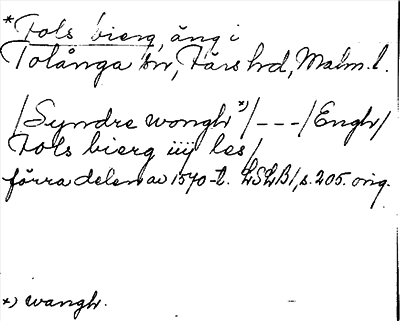 *Fols bierg, äng i
Tolånga sn, Färs hd, Malm. l.
/Syndre wongh *)/ - - - /Engh/
Fols bierg iiij les/
förra delen av 1570-t. LSLB1, s. 205. orig.
*) wangh.